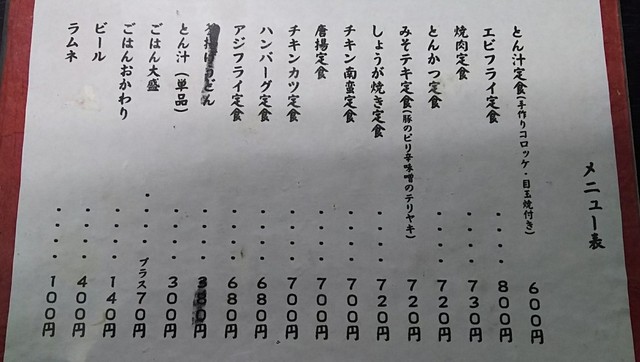 メニュー表
とん汁定食(手作りコロッケ・目玉焼付き) 600円
エビフライ定食・・・・800円
焼肉定食 730円
とんかつ定食・・・・720円
みそテキ定食(豚のピリ辛味噌のテリヤキ) 720円
しょうが焼き定食・・・・720円
チキン南蛮定食・・・・700円
唐揚定食・・・・700円
チキンカツ定食・・・・700円
ハンバーグ定食・・・・680円
アジフライ定食・・・・680円
うどん・・・・380円
とん汁(単品)・・・・300円
ごはん大盛・・・・プラス70円
ごはんおかわり・・・・140円
ビール・・・・400円
ラムネ・・・・100円